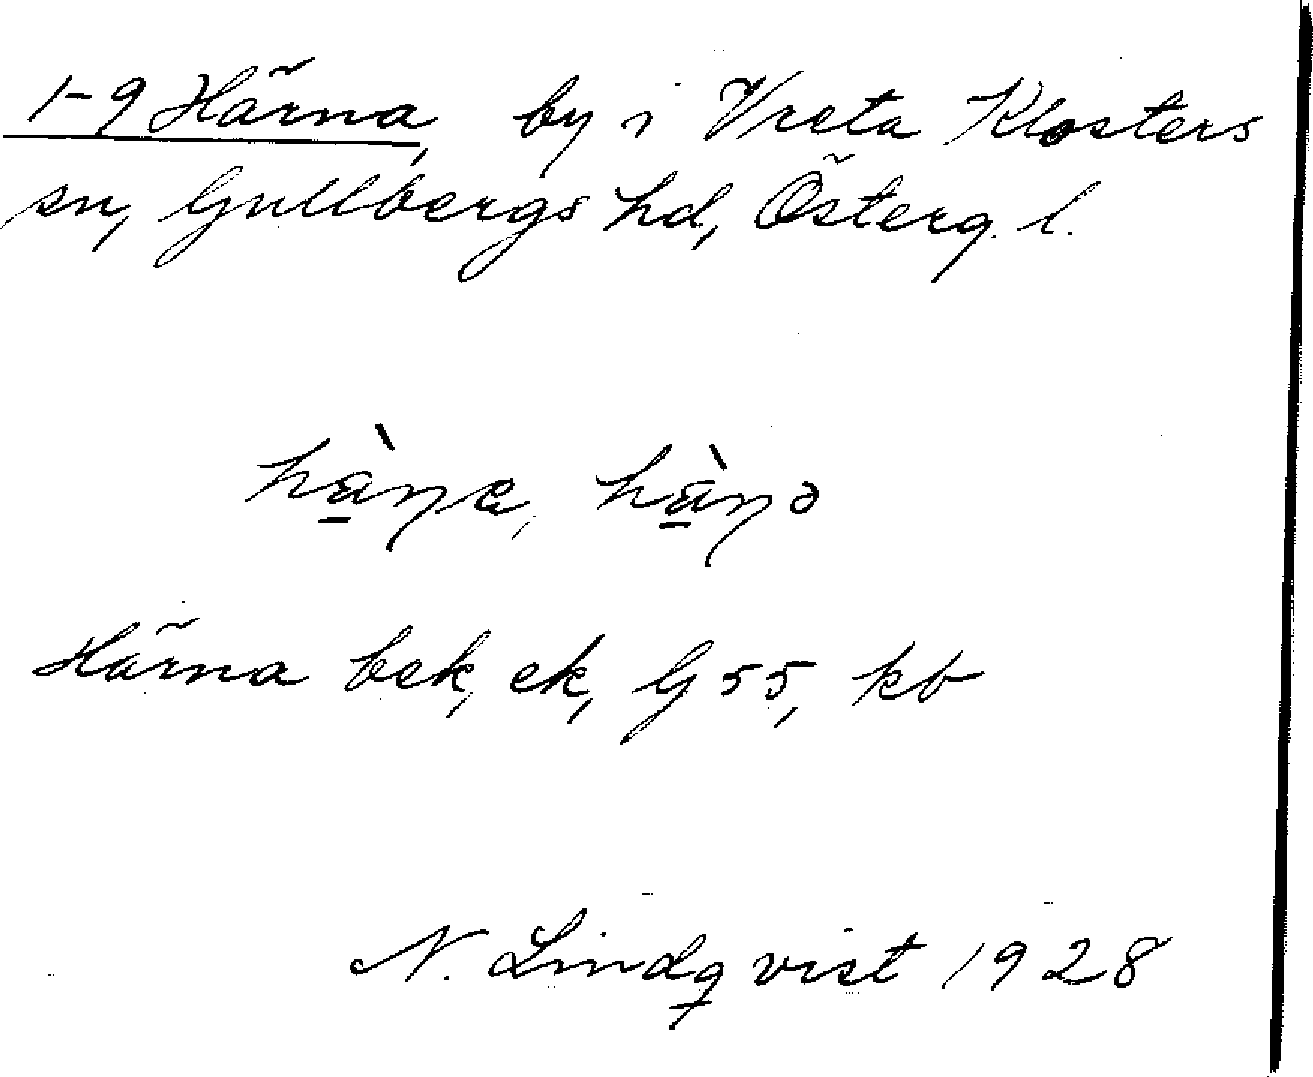 1-9 Härna, by i Vreta Klosters
sn, Gullbergs hd, Österg. l.
hä̀ɳa, hä̀ɳə
Härna bek, ek, G 55, kb
N. Lindqvist 1928